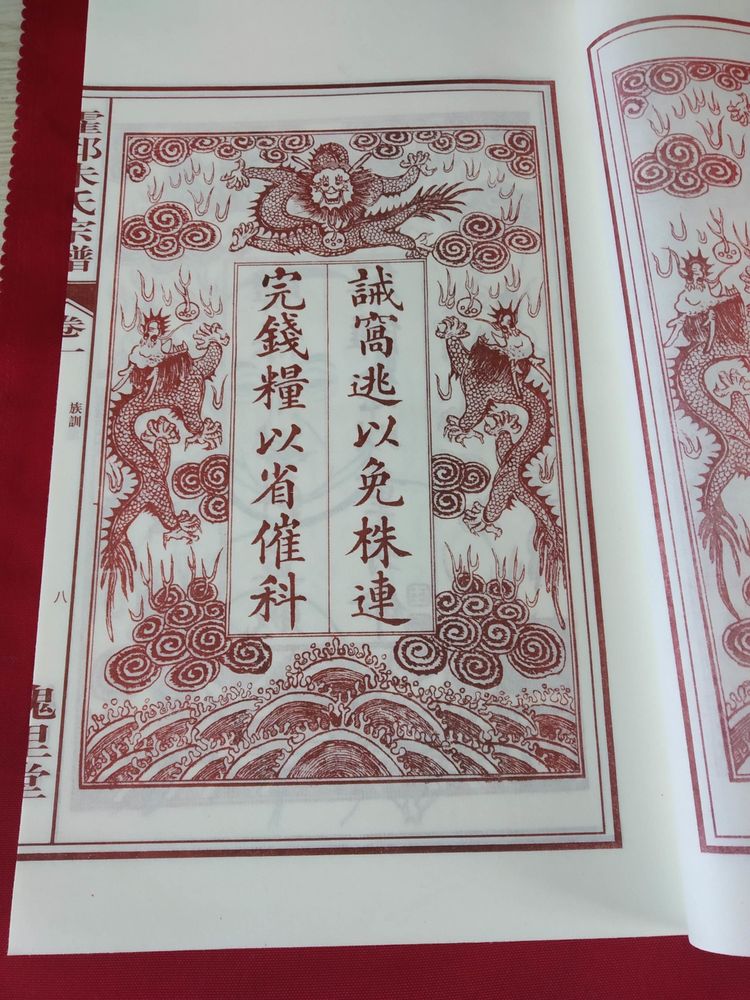 誡窩逃以免株連
完錢糧以省催科
霍邱朱氏宗譜
卷一
族訓
八
槐里堂